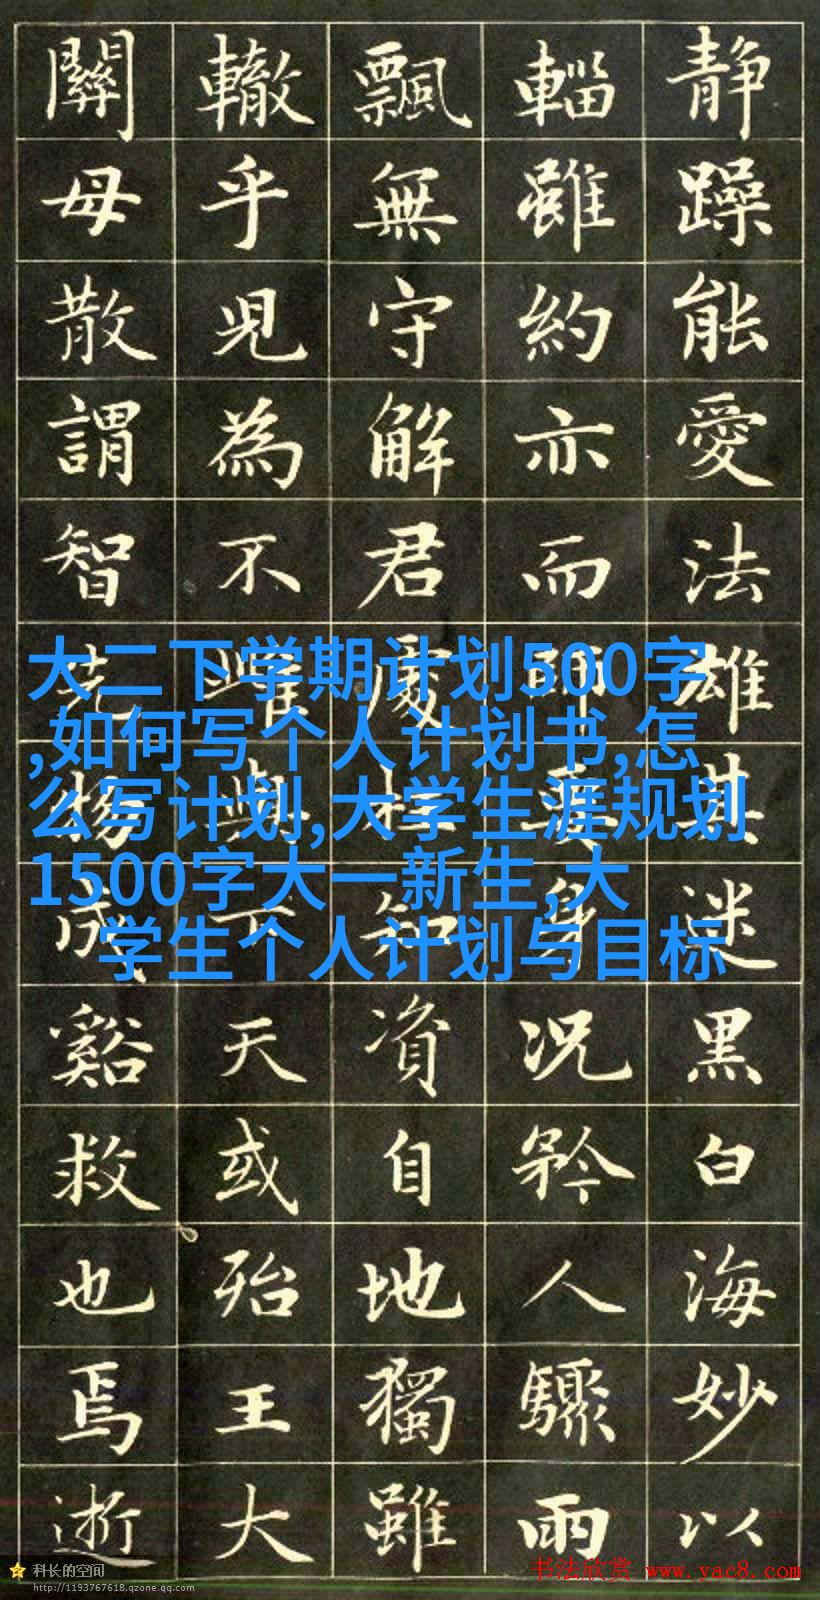 静躁能愛法雄其迷黑白海妙以
輜雖約亦而身況矜人驟雨
飄無守解君處知資自地獨雖
轍乎児為不唯與天或殆王大
關母散謂智物成谿救也焉逝
大二下学期计划500字
,如何写个人计划书,怎
么写计划,大学生涯规划
1500字大一新生,大
学生个人计划与目标
科长的空间
http://1193767618.qzone.qq.com
书法欣赏 www.yac8.com